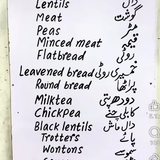 Lentils دال
Meat گوشت
Peas مٹر
Minced meat قیمہ
Flatbread روٹی
Leavened bread خمیری روٹی
Round bread پراٹھا
Milktea دودھ پتی
Chickpea کابلی چنے
Black lentils دال ماش
Trotters پائے
Wontons سموسے